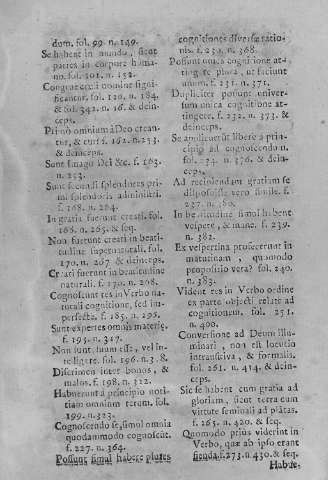 dum. fol. 99. n. 149.
Se habent in mundo, sicut
partes in corpore huma-
no. fol. 101. n. 152.
Congrue cœli nomine signi-
ficantur. fol. 120. n. 184.
& fol. 342. n. 16. & dein-
ceps.
Primò omnium à Deo crean-
tur, & cur? f. 162. n. 253.
& deinceps.
Sunt imago Dei &c. f. 163.
n. 253.
Sunt secundi splendores pri-
mi splendoris administri.
f. 168. n. 264.
In gratia fuerunt creati. fol.
168. n. 265. & seq.
Non fuerunt creati in beati-
tudine supernaturali. fol.
170. n. 267 & deinceps.
Creati fuerunt in beatitudine
naturali. f. 170. n. 268.
Cognoscunt res in Verbo na-
turali cognitione, sed im-
perfecta. f. 185. n. 295.
Sunt expertes omnis materiæ.
f. 195. n. 317.
Non sunt suum esse, vel in-
telligere. fol. 196. n. 318.
Discrimen inter bonos, &
malos. f. 198. n. 322.
Habuerunt à principio noti-
tiam omnium rerum. fol.
199. n. 323.
Cognoscendo se, simul omnia
quodammodo cognoscunt.
f. 227. n. 364.
Possunt simul habere plures
cognitiones diversæ ratio-
nis. f. 231. n. 368.
Possunt una cognitione at-
tingere plura, ut faciunt
unum. f. 231. n. 371.
Dupliciter possunt univer-
sum unica cognitione at-
tingere. f. 232. n. 373. &
deinceps.
Se applicant liberè à prin-
cipio ad cognoscendum.
fol. 234. n. 376. & dein-
ceps.
Ad recipiendam gratiam se
disposuisse vero simile. f.
237. n. 380.
In beatitudine simul habent
vespere, & mane. f. 239.
n. 382.
Ex vespertina profecerunt in
matutinam, quomodo
propositio vera? fol. 240.
n. 383.
Vident res in Verbo ordine
ex parte objecti relatè ad
cognitionem. fol. 251.
n. 400.
Conversione ad Deum illu-
minari, non est locutio
intransitiva, & formalis.
fol. 261. n. 414. & dein-
ceps.
Sic se habent cum gratia ad
gloriam, sicut terra cum
virtute seminali ad plātas.
f. 265. n. 420. & seq.
Quomodo priùs viderint in
Verbo, quæ ab ipso erant
fienda. f. 273. n 430. & seq.
Habue-